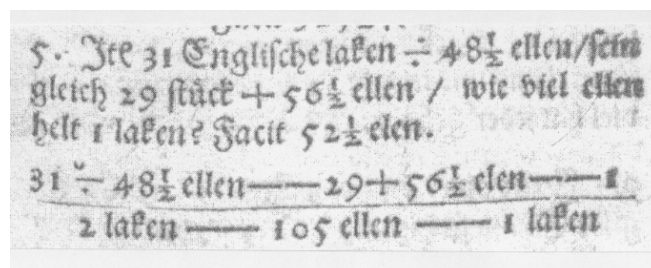 5. Ite 31 Englische laken ÷ 48½ ellen/sein
gleich 29 stück + 56½ ellen / wie viel ellen
helt 1 laken? Facit 52½ elen.
31 ÷ 48½ ellen——29+56½ elen——1
2 laken —— 105 ellen —— 1 laken